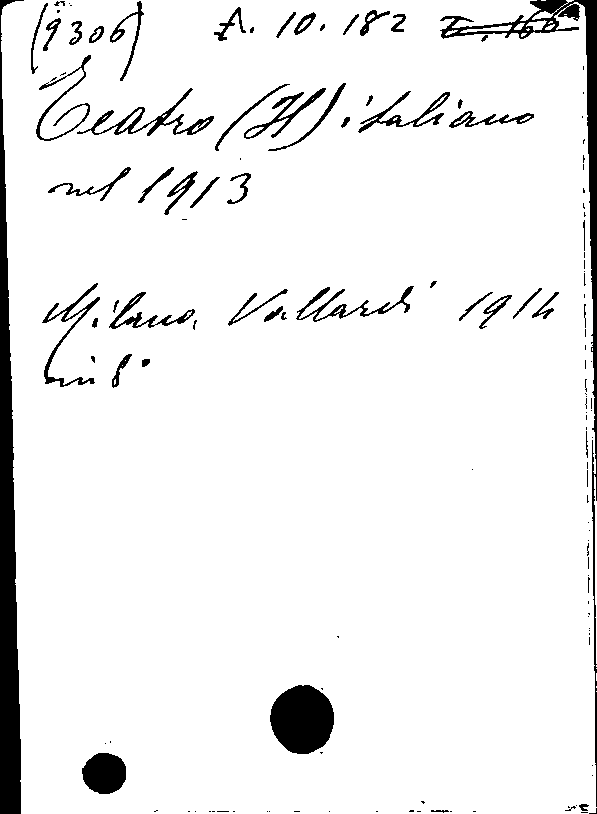 (9306) A. 10. 182
Teatro (Il) italiano
nel 1913
Milano, Vallardi 1914
in 8°